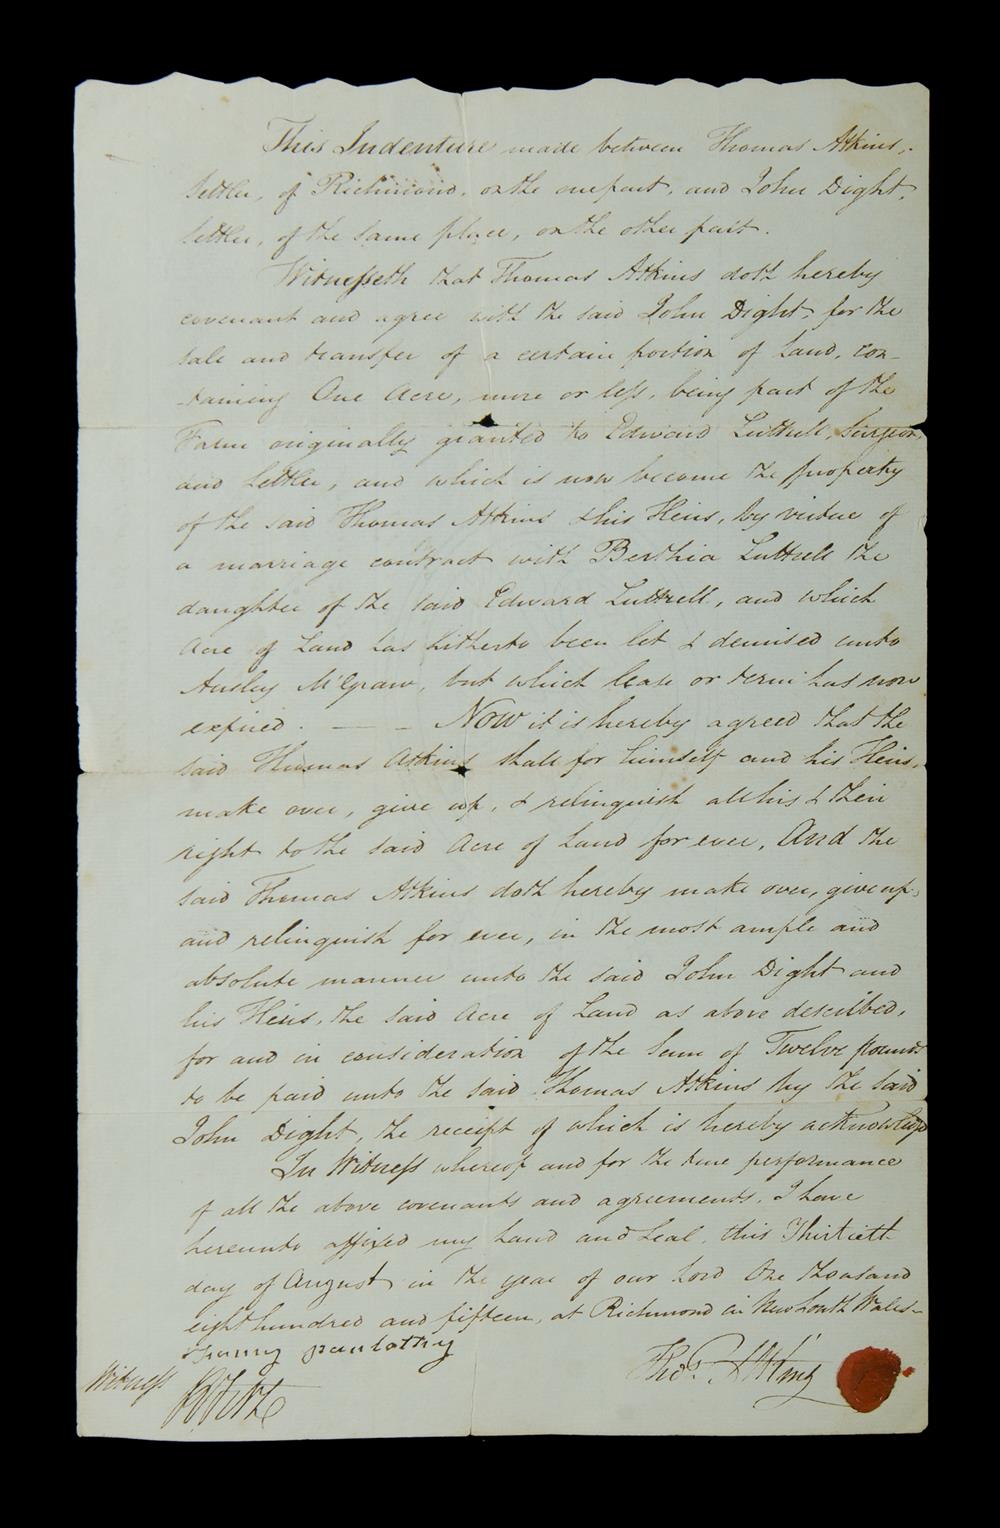 This Indenture made between Thomas Atkins,
Settler, of Richmond, on the one part, and John Dight,
Settler, of the same place, on the other part.
Witnesseth that Thomas Atkins doth hereby
covenant and agree with the said John Dight, for the
sale and transfer of a certain portion of Land, con-
-taining One Acre, more or less, being part of the
Farm originally granted to Edward Luttrell, Surgeon,
and Settler, and which is now become the property
of the said Thomas Atkins & his Heirs, by virtue of
a marriage contract with Berthia Luttrell the
daughter of the said Edward Luttrell, and which
Acre of Land has hitherto been let & demised unto
Ansley McGraw, but which lease or term has now
expired. — — Now it is hereby agreed that the
said Thomas Atkins shall for himself and his Heirs,
make over, give up, & relinquish all his & their
right to the said Acre of Land for ever, And the
said Thomas Atkins doth hereby make over, give up,
and relinquish for ever, in the most ample and
absolute manner unto the said John Dight and
his Heirs, the said Acre of Land as above described,
for and in consideration of the Sum of Twelve pounds
to be paid unto the said Thomas Atkins by the said
John Dight, the receipt of which is hereby acknowledged
In Witness whereof and for the true performance
of all the above covenants and agreements, I have
hereunto affixed my hand and Seal, this Thirtieth
day of August in the year of our Lord One thousand
eight hundred and fifteen, at Richmond in New South Wales—
Thos. Atkins
Witness